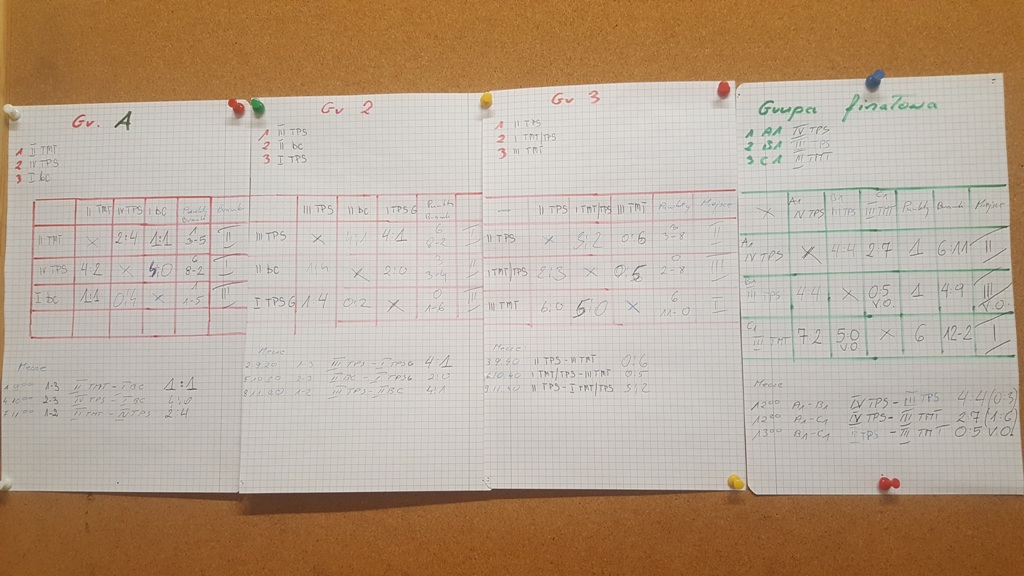 Gr. A
1 II TMT
2 IV TPS
3 I bc
II TMT IV TPS I bc Punkty Bramki
II TMT × 2:4 1:1 1 3-5 II
IV TPS 4:2 × 4:0 6 8-2 I
I bc 1:1 0:4 × 1 1-5 III
Mecze
1:3 II TMT - I BC 1:1
2-3 TPS - I BC 4:0
1-2 II TMT - IV TPS 2:4
Gr 2
1 III TPS
2 II bc
3 I TPS
III TPS II bc I TPS G Punkty Bramki
III TPS × 4:1 4:1 6 8-2 I
II bc 1:4 × 2:0 3 3:4 II
I TPS G 1:4 0:2 × 0 1-6 III
Mecze
1-3 III TPS - I TPSG 4:1
2-3 II BC - I TPSG 2:0
1-2 III TPS - II BC 4:1
Gr 3
1 II TPS
2 I TMT/TPS
3 III TMT
II TPS I TMT/TPS III TMT Punkty Miejsce
II TPS × 5:2 0:6 3 II
I TMT/TPS 2:5 × 0:5 0 III
III TMT 6:0 5:0 × 6 11-0 I
Mecze
II TPS - III TMT 0:6
I TMT/TPS - III TMT 0:5
II TPS - I TMT/TPS 5:2
Grupa finałowa
1 A1 IV TPS
2 B1 III TPS
3 C1 III TMT
× A1 IV TPS B1 III TPS C1 III TMT Punkty Bramki Miejsce
A1 IV TPS × 4:4 2:7 1 6:11 II
B1 III TPS 4:4 × 0:5 v.o. 1 4-9 III v.o.
C1 III TMT 7:2 5:0 v.o. × 6 12-2 I
Mecze
12⁰⁰ A1-B1 IV TPS - III TPS 4:4
12³⁰ A1-C1 IV TPS - III TMT 2:7 (1:6)
13⁰⁰ B1-C1 TPS - III TMT 0:5 V.O.